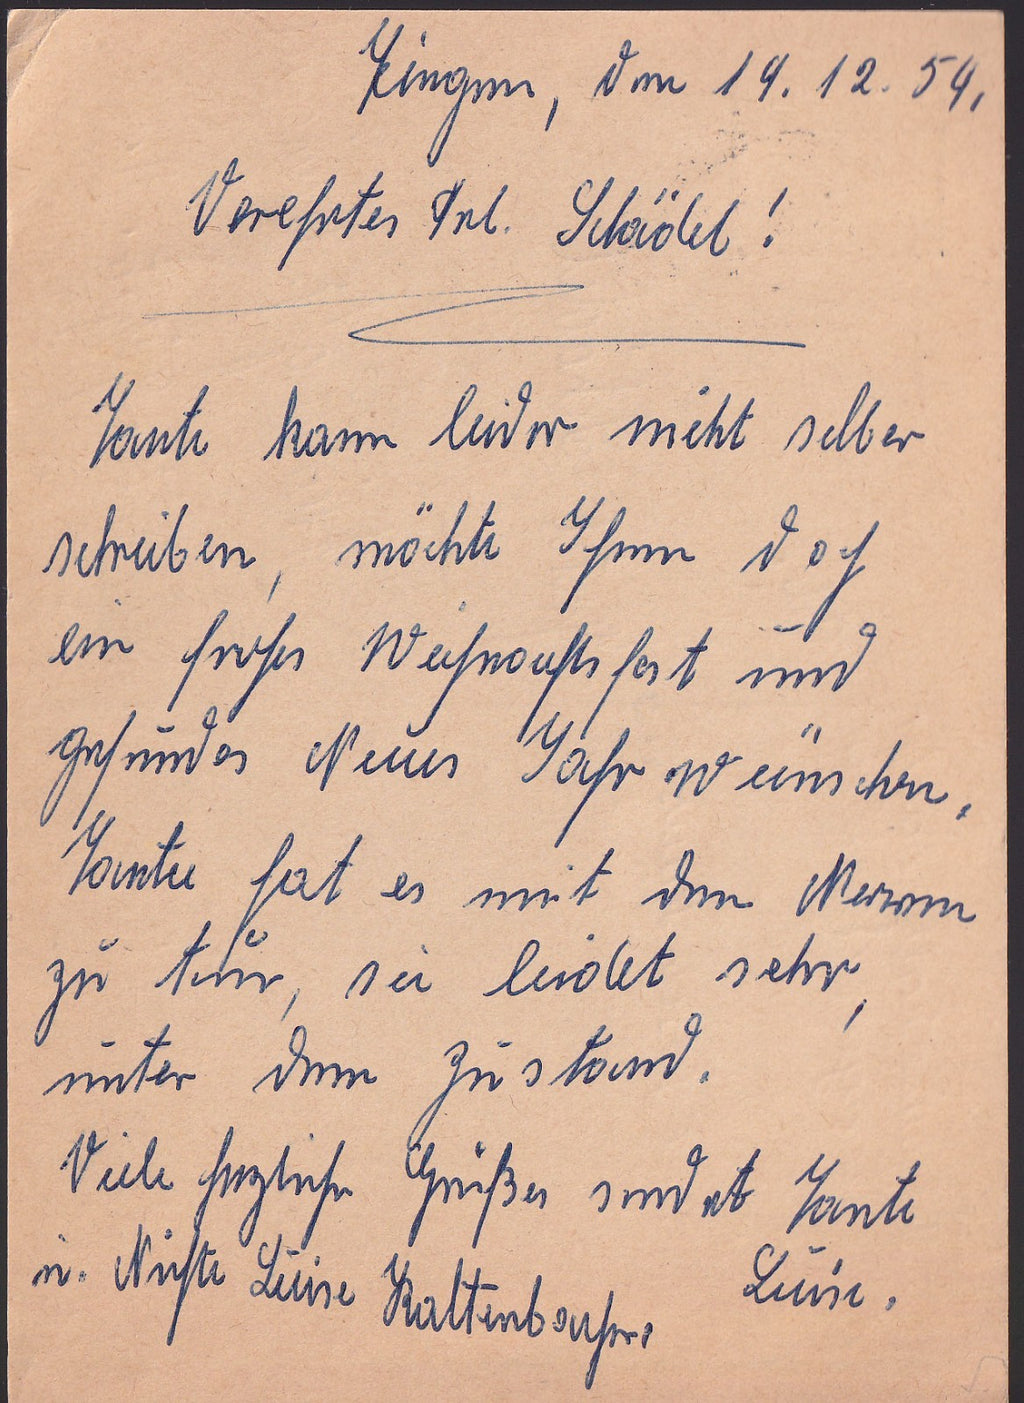 den 19. 12. 54.
Verehrtes Frl. Schädel!
Tante kann leider nicht selber
schreiben, möchte Ihnen doch
ein frohes Weihnachtsfest und
gesundes Neues Jahr wünschen.
Tante hat es mit den Nerven
zu tun, sie leidet sehr,
unter dem Zustand.
Viele herzliche Grüße sendet Tante
Luise.
u. Nichte Luise Kaltenbacher.